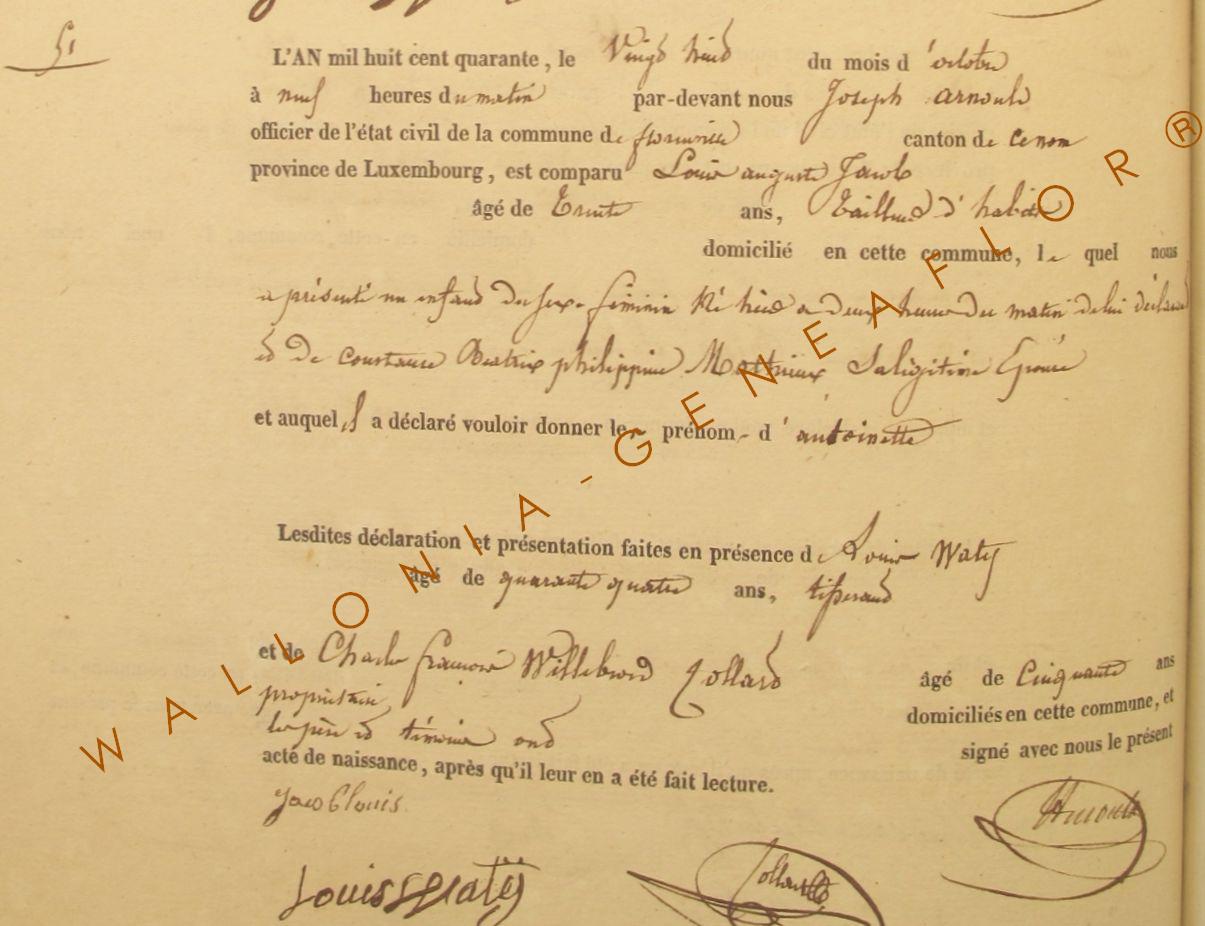 51
L'AN mil huit cent quarante, le Vingt huit du mois d'octobre
à neuf heures du matin par-devant nous Joseph arnould
officier de l'état civil de la commune de florenville canton de
province de Luxembourg, est comparu Louis auguste Jacob
âgé de Trente ans, Tailleur d'habits
domicilié en cette commune, le quel nous
a présenté un enfant du sexe féminin Né hier a deux heures du matin de lui déclarant
et de constance Beatrix philippine Mathieux Sa légitime Epouse
et auquel il a déclaré vouloir donner le prénom d'antoinette
Lesdites déclaration et présentation faites en présence de Louis Waty
âgé de quarante quatre ans, tisserand
et de Charles françois Willebrord Collard âgé de Cinquante ans
propriétaire, domiciliés en cette commune, et
les père et témoins ont signé avec nous le présent
acte de naissance, après qu'il leur en a été fait lecture.
Jacob louis
Arnould
Louis Waty
Collard
WALLONIA-GENEAFLOR®